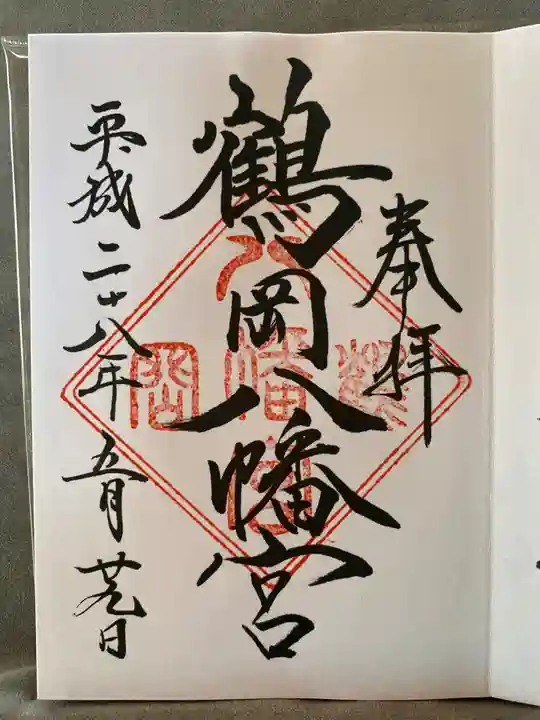 奉拝
鶴岡八幡宮
鶴
八幡宮
岡
平成二十八年五月廿九日